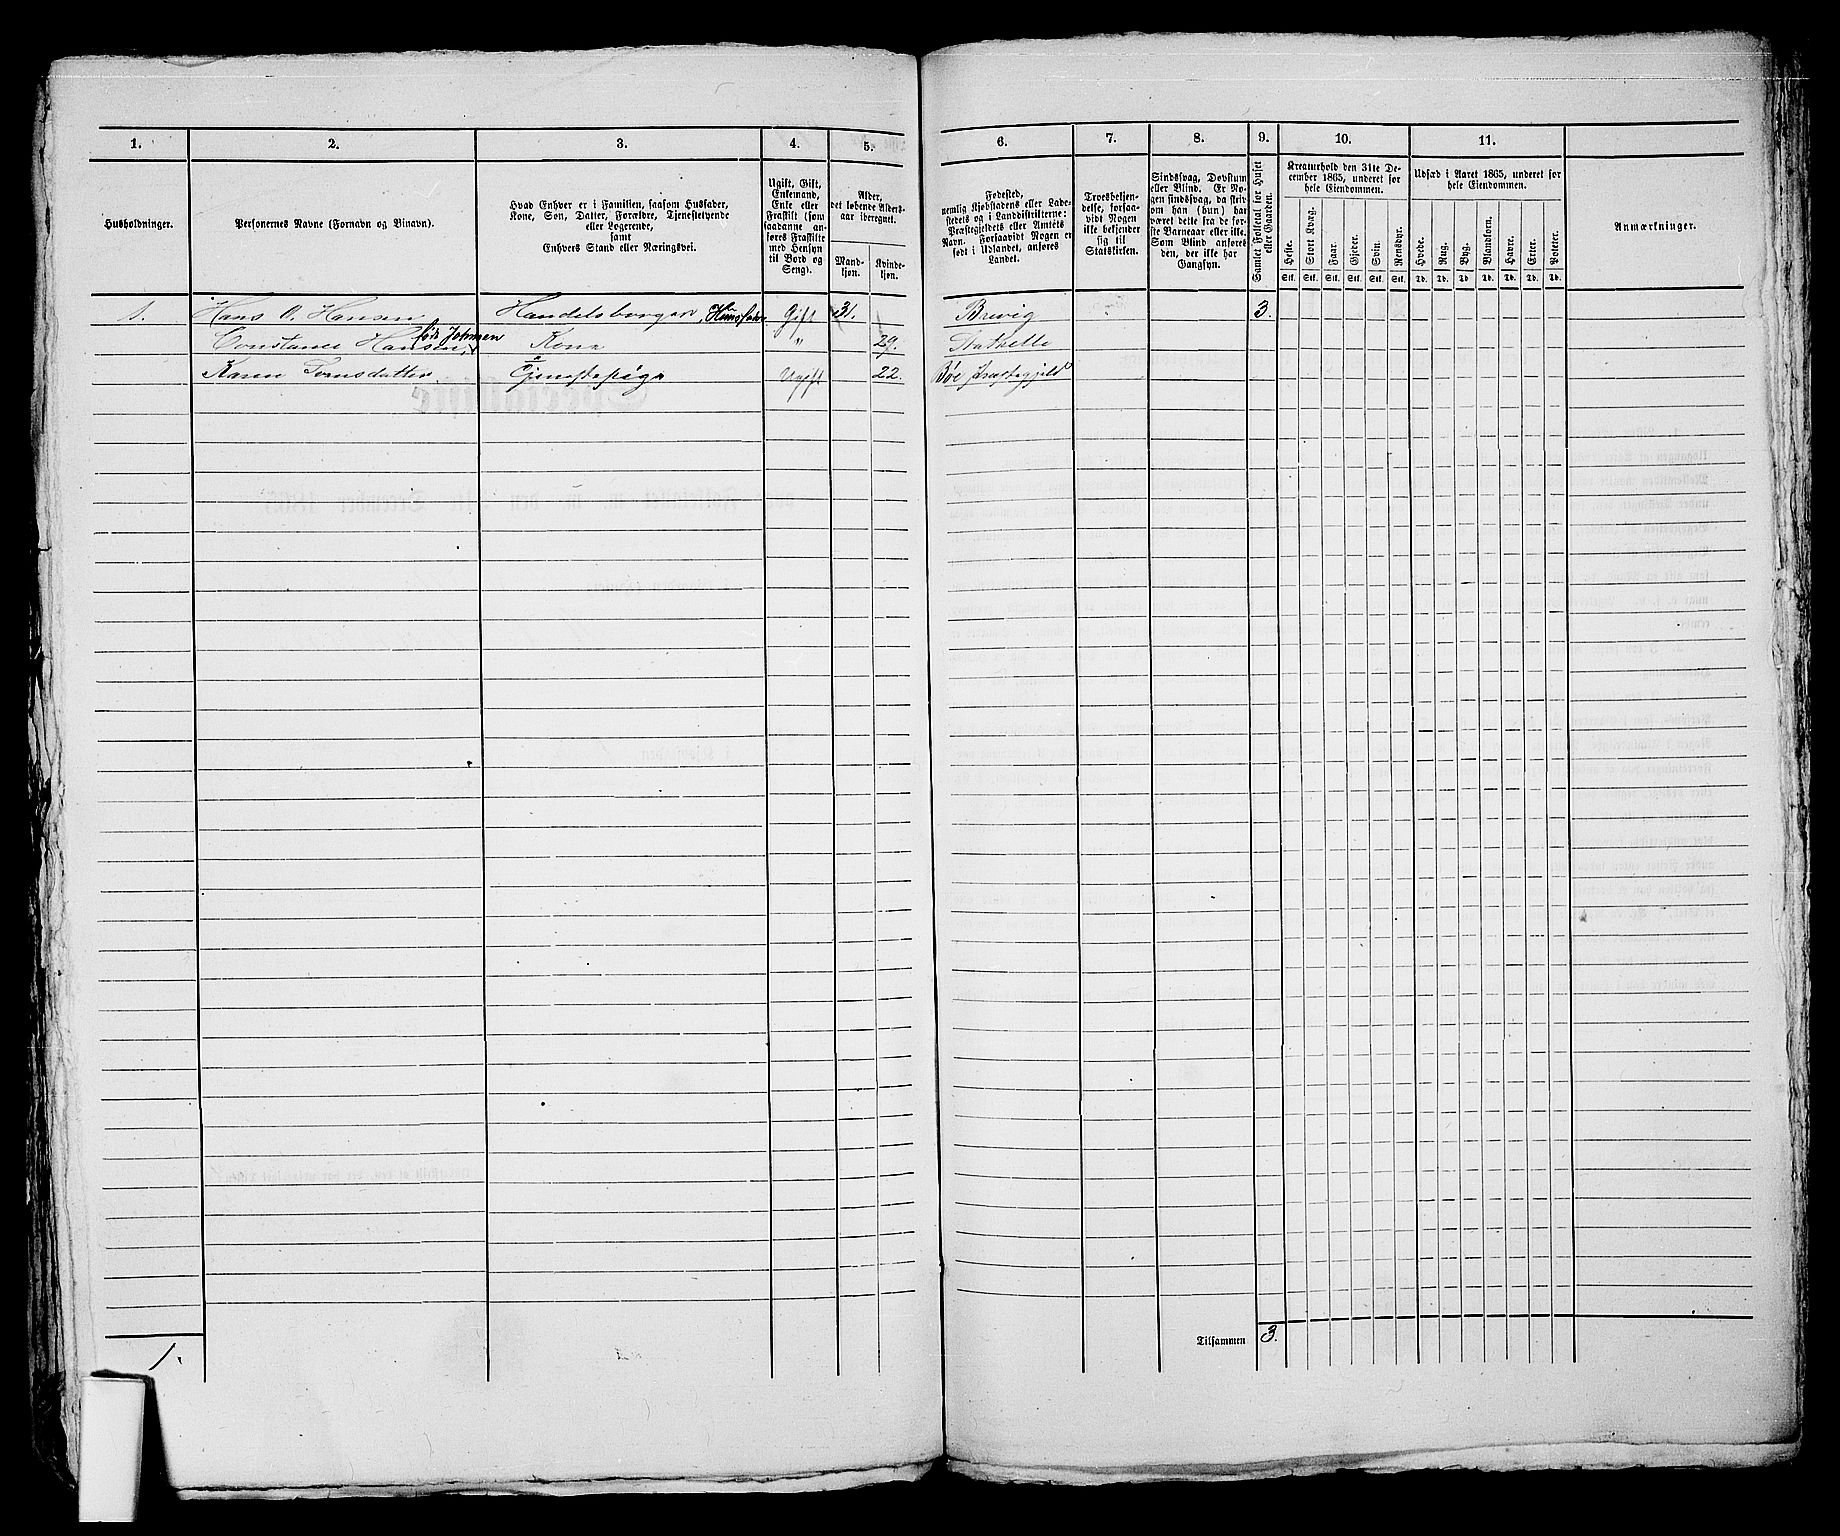 1. 2. 3. 4. 5. 6. 7. 8. 9. 10. 11.
Husholdninger.
Personernes Navne (Fornavn og Binavn).
Hvad Enhver er i Familien, saasom Husfader,
Kone, Søn, Datter, Forældre, Tjenestetyende
eller Logerende,
samt
Enhvers Stand eller Næringsvei.
Ugift, Gift,
Enkemand,
Enke eller
Fraskilt (som
saadanne an-
føres Fraskilte
med Hensyn
til Bord og
Seng).
Alder,
det løbende Alders-
aar iberegnet.
Mand-
kjøn.
Kvinde-
kjøn.
Fødested,
nemlig Kjøbstadens eller Lade-
stedets og i Landdistrikterne:
Præstegjeldets eller Amtets
Navn. Forsaavidt Nogen er
født i Udlandet, anføres
Landet.
Troesbekjen-
delse, forsaa-
vidt Nogen
ikke bekjender
sig til
Statskirken.
Sindssvag, Døvstum
eller Blind. Er No-
gen sindssvag, da skriv
om han (hun) har
været dette fra de før-
ste Barneaar eller ikke.
Som Blind anføres
den, der ikke har
Gangsyn.
Samlet Folketal for Huset
eller Gaarden.
Kreaturhold den 31te De-
cember 1865, underet for
hele Eiendommen.
Heste. Stort Kvæg. Faar. Gjeder. Svin. Rensdyr.
Stk. Stk. Stk. Stk. Stk. Stk.
Udsæd i Aaret 1865, underet for
hele Eiendommen.
Hvede. Rug. Byg. Blandkorn. Havre. Erter. Poteter.
Td. Td. Td. Td. Td. Td. Td.
Anmærkninger.
1. Hans O. Hansen Handelsborger, Husfader Gift 31. Brevig 3.
Constance Hansen, född Johnsen Kone " 29. Stathelle
Karen Tornsdatter Tjenestepige Ugift 22. Bøe Præstegjeld
Tilsammen 3.
1.